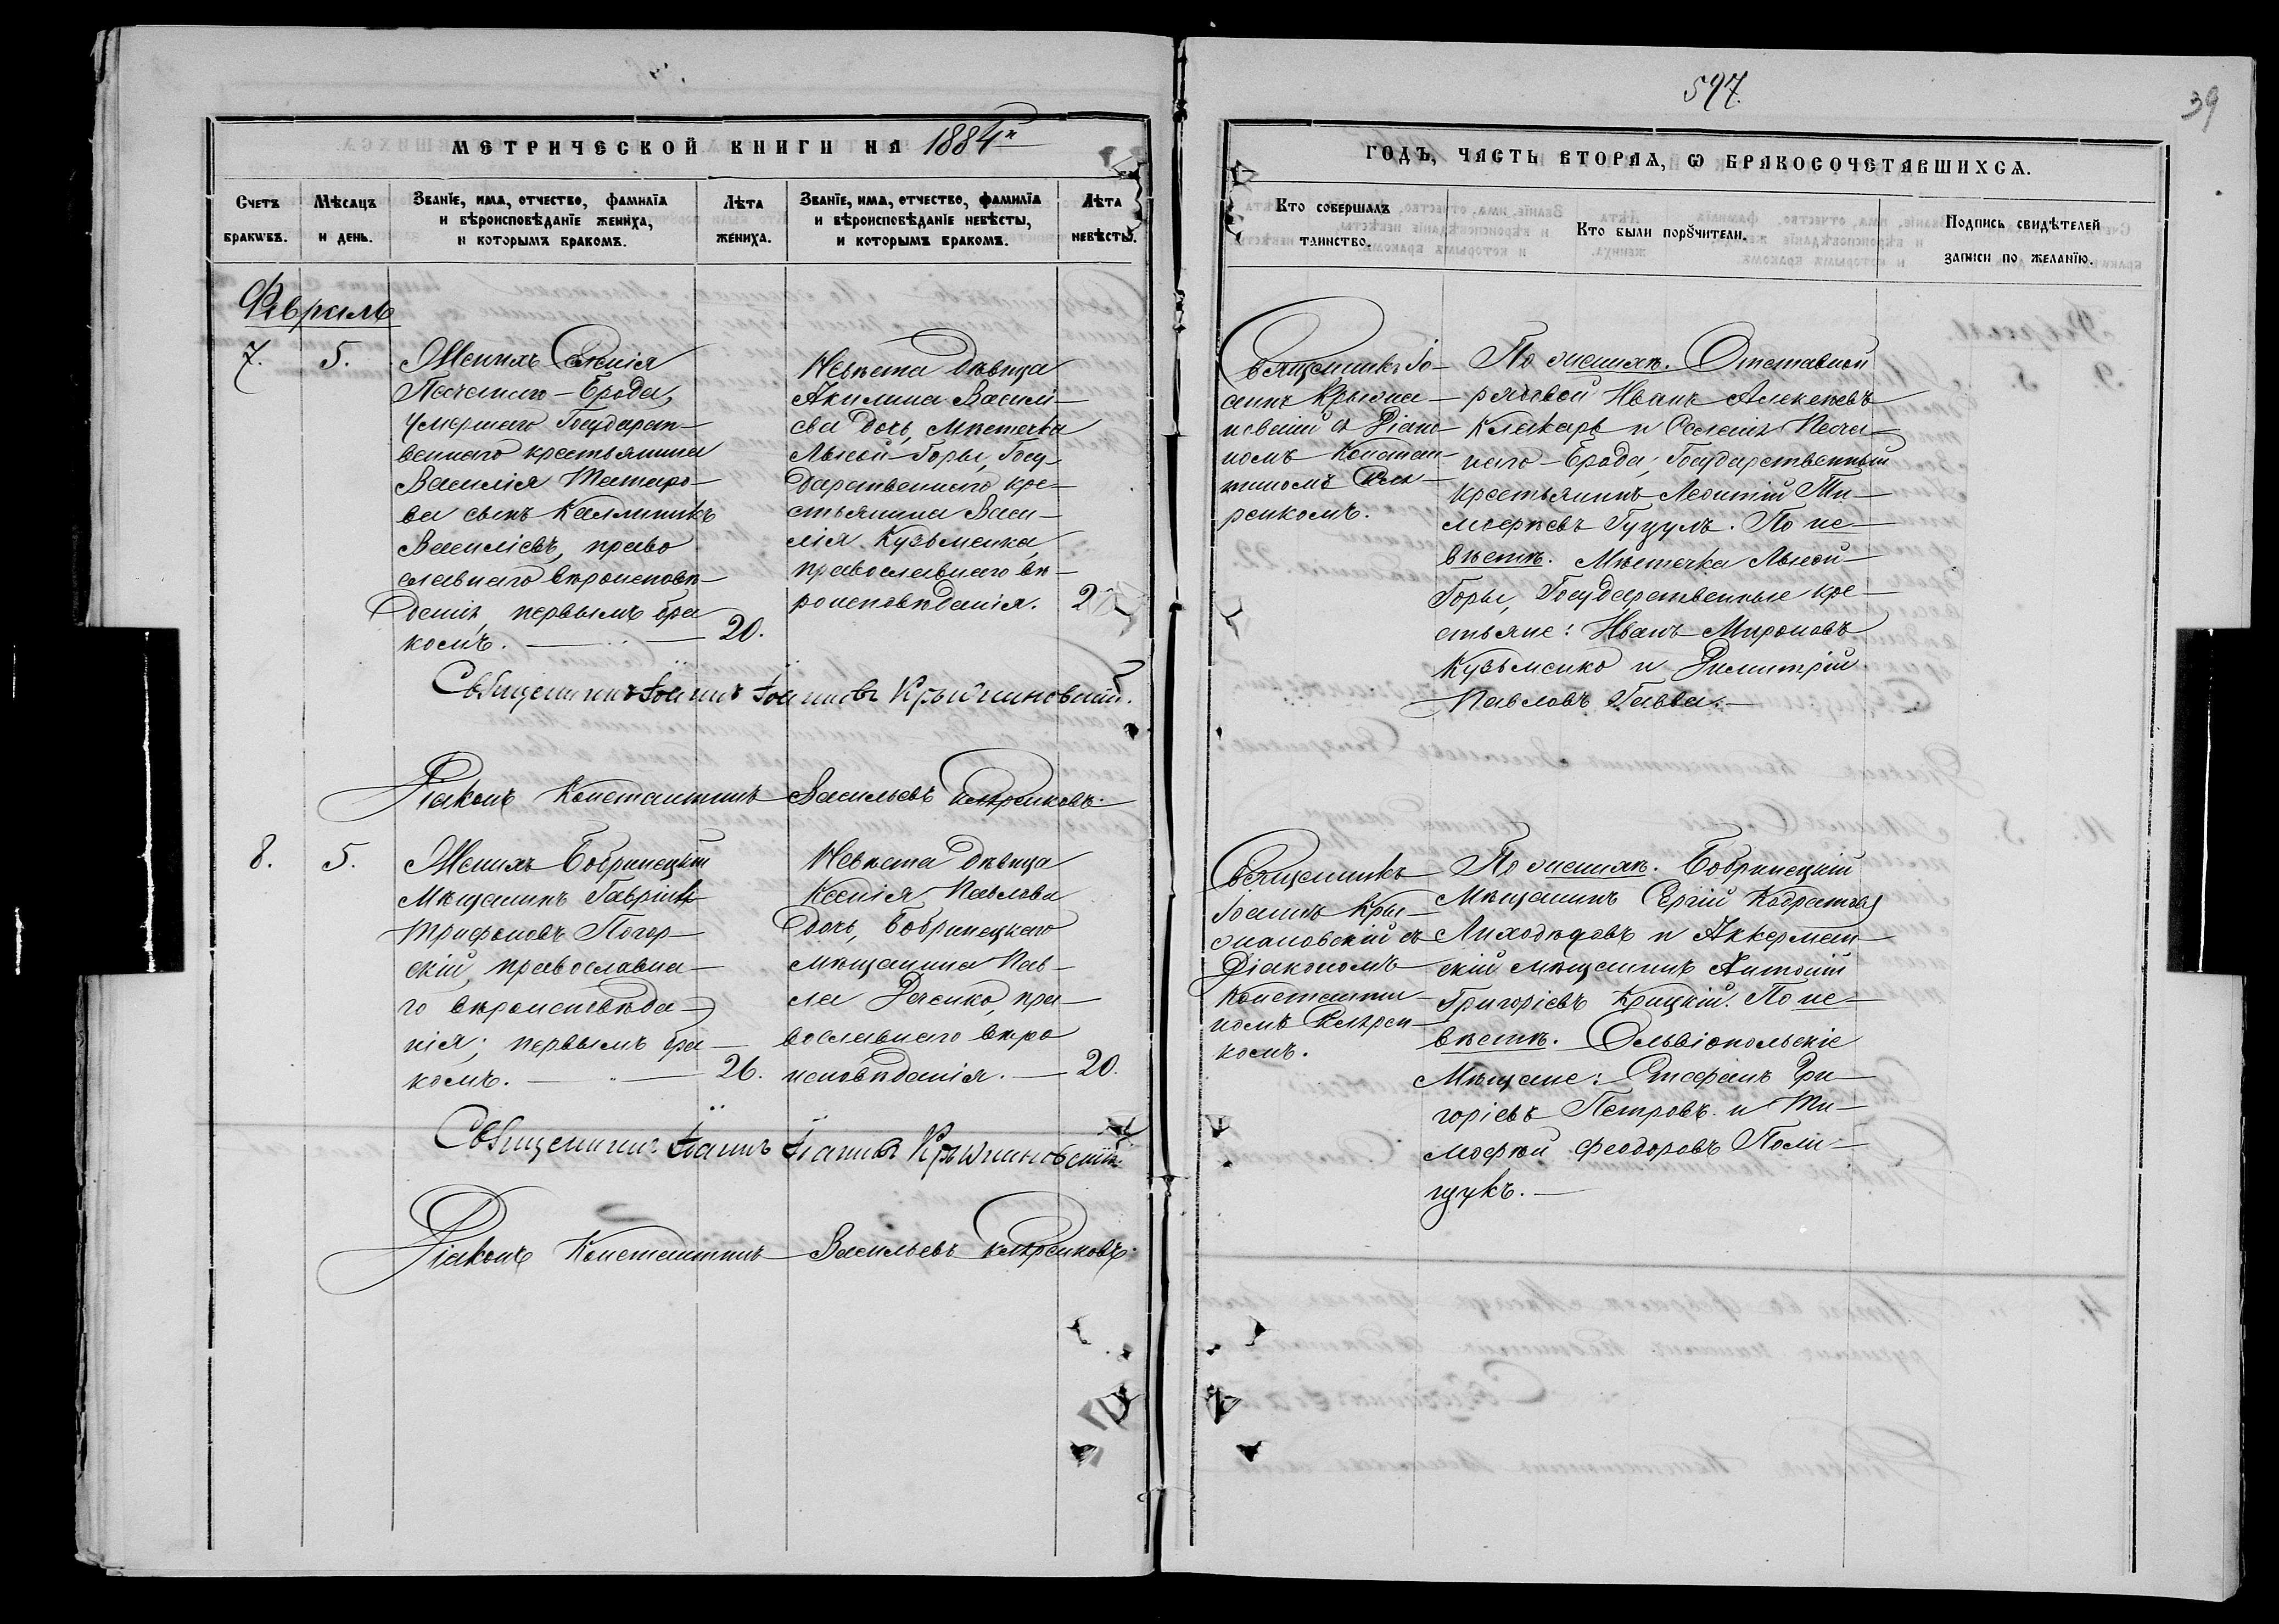 597.
39
МЕТРИЧЕСКОЙ КНИГИ НА 1884й
ГОДЪ, ЧАСТЬ ВТОРАѦ, Ѡ БРАКОСОЧЕТАВШИХСѦ.
Счетъ браковъ.
Мѣсяцъ и день.
Званїе, имѧ, отчество, фамилїѧ
и вѣроисповѣданїе жениха,
и которымъ бракомъ.
Лѣта жениха.
Званїе, имѧ, отчество, фамилїѧ
и вѣроисповѣданїе невѣсты,
и которымъ бракомъ.
Лѣта невѣсты.
Кто совершалъ таинство.
Кто были порꙋчители.
Подпись свидѣтелей
записи по желанїю.
Февраль
7. 5.
Женихъ Селенія
Песчаного-Брода,
умершаго Государст-
веннаго крестьянина
Василія Татаро-
ва сынъ Каллиникъ
Василіевъ, право
славнаго вѣроисповѣ-
данія, первымъ бра
комъ. — 20.
Невѣста дѣвица
Акилина Василі-
ева дочь, мѣстечка
Лысой-Горы, Госу-
дарственнаго кре-
стьянина Васи-
лія Кузьменка,
православнаго вѣ-
роисповѣданія.
Священникъ Іо-
аннъ Крыжа-
новскій съ Діако-
номъ Констан-
тиномъ
По женихѣ. Отставной
рядовой Иванъ Алексѣевъ
Клекарь и Селенія Песча-
наго-Брода, Государственный
крестьянинъ Леонтій Ти-
моѳѣевъ Гуцулъ. По не-
вѣстѣ. Мѣстечка Лысой-
Горы, Государственные кре-
стьяне: Иванъ Мироновъ
Кузьменко и Димитрій
Павловъ Савва.—
Священникъ Іоаннъ Іоанновъ Крыжановскій.
Діаконъ Константинъ Васильевъ
8. 5.
Женихъ Бобринецкій
Мѣщанинъ Гавріилъ
Трифоновъ Погор-
скій, православна-
го вѣроисповѣда-
нія; первымъ бра-
комъ. — 26.
Невѣста дѣвица
Ксенія Павлова
дочь, Бобринецкаго
мѣщанина Пав-
ла Дяченко, пра-
вославнаго вѣро
исповѣданія. — 20.
Священникъ
Іоаннъ Кры-
жановскій съ
Діакономъ
Константи-
номъ
По женихѣ. Бобринецкій
Мѣщанинъ Сергій Кодратовъ
Лиходѣдовъ и Аккерман-
скій мѣщанинъ Антоній
Григоріевъ Крицкій. По не-
вѣстѣ. Ольвіопольскіе
Мѣщане: Стефанъ Гри-
горіевъ Петровъ и Ти-
моѳей Феодоровъ Поли-
щукъ.—
Священникъ Іоаннъ Іоанновъ Крыжановскій.
Діаконъ Константинъ Васильевъ